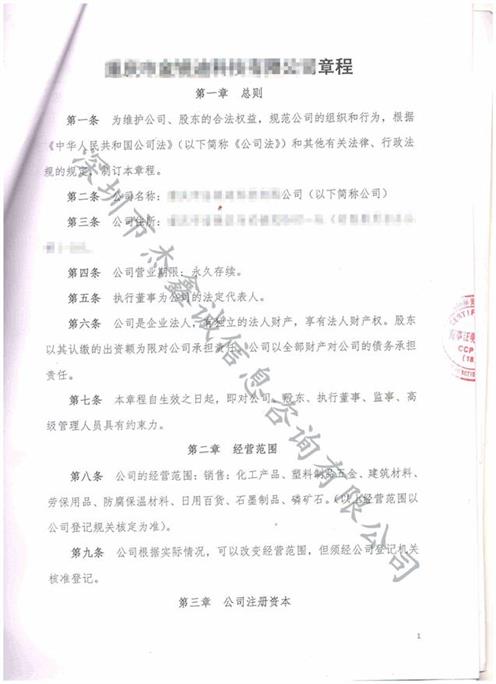 章程
第一章 总则
第一条 为维护公司、股东的合法权益，规范公司的组织和行为，根据
《中华人民共和国公司法》（以下简称《公司法》）和其他有关法律、行政法
规的规定，制订本章程。
第二条 公司名称：公司（以下简称公司）
第三条 公司住所：
第四条 公司营业期限：永久存续。
第五条 执行董事为公司的法定代表人。
第六条 公司是企业法人，有独立的法人财产，享有法人财产权。股东
以其认缴的出资额为限对公司承担责任，公司以全部财产对公司的债务承担
责任。
第七条 本章程自生效之日起，即对公司、股东、执行董事、监事、高
级管理人员具有约束力。
第二章 经营范围
第八条 公司的经营范围：销售：化工产品、塑料制品五金、建筑材料、
劳保用品、防腐保温材料、日用百货、石墨制品、磷矿石。（以上经营范围以
公司登记规关核定为准）。
第九条 公司根据实际情况，可以改变经营范围，但须经公司登记机关
核准登记。
第三章 公司注册资本
1
深圳市杰鑫诚信息咨询有限公司
CERTIF
CCP
(18